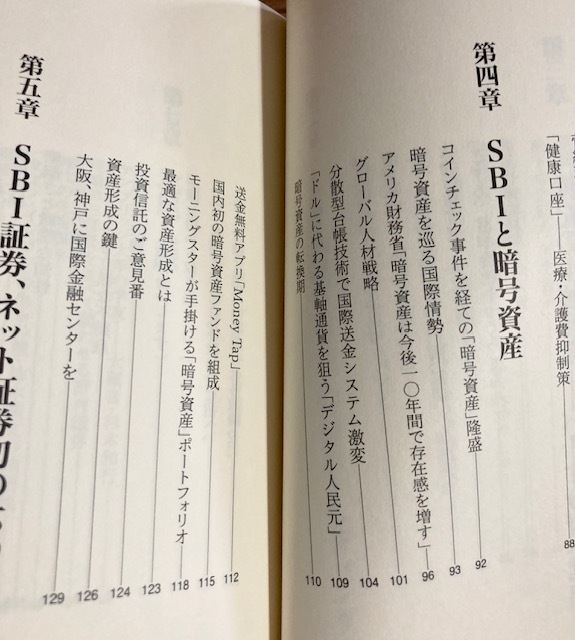 「健康口座」――医療・介護費抑制策 88
第四章 SBIと暗号資産
コインチェック事件を経ての「暗号資産」隆盛 92
暗号資産を巡る国際情勢 93
アメリカ財務省「暗号資産は今後一〇年間で存在感を増す」 96
グローバル人材戦略 101
分散型台帳技術で国際送金システム激変 104
「ドル」に代わる基軸通貨を狙う「デジタル人民元」 109
暗号資産の転換期 110
送金無料アプリ「Money Tap」 112
国内初の暗号資産ファンドを組成 115
モーニングスターが手掛ける「暗号資産」ポートフォリオ 118
最適な資産形成とは 123
投資信託のご意見番 124
資産形成の鍵 126
大阪、神戸に国際金融センターを 129
第五章 SBI証券、ネット証券初の